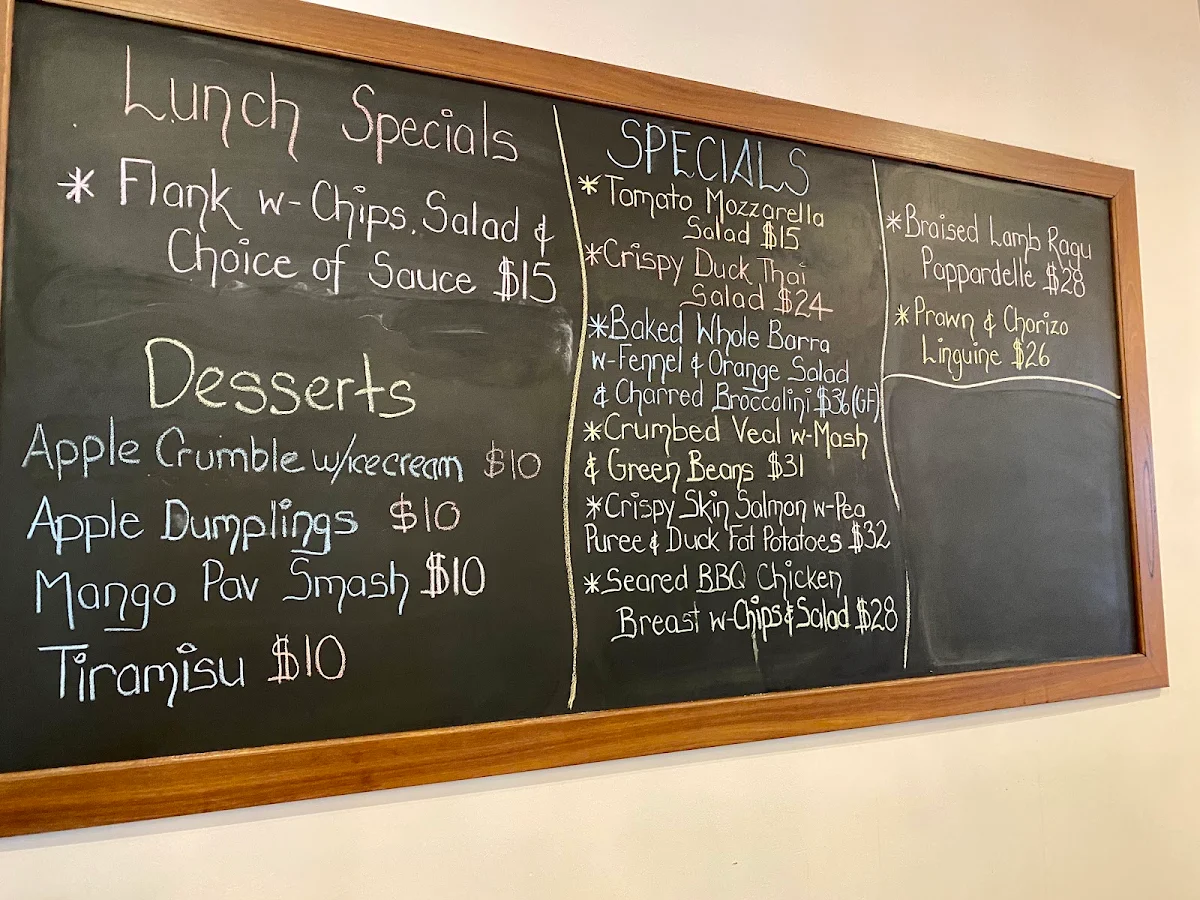 Lunch Specials
* Flank w- Chips. Salad &
Choice of Sauce $15
Desserts
Apple Crumble w/icecream $10
Apple Dumplings $10
Mango Pav Smash $10
Tiramisu $10
SPECIALS
*Tomato Mozzarella
Salad $15
*Crispy Duck Thai
Salad $24
*Baked Whole Barra
w-Fennel & Orange Salad
& Charred Broccolini $36(GF)
*Crumbed Veal w-Mash
& Green Beans $31
*Crispy Skin Salmon w-Pea
Puree & Duck Fat Potatoes $32
*Seared BBQ Chicken
Breast w-Chips & Salad $28
*Braised Lamb Ragu
Pappardelle $28
*Prawn & Chorizo
Linguine $26